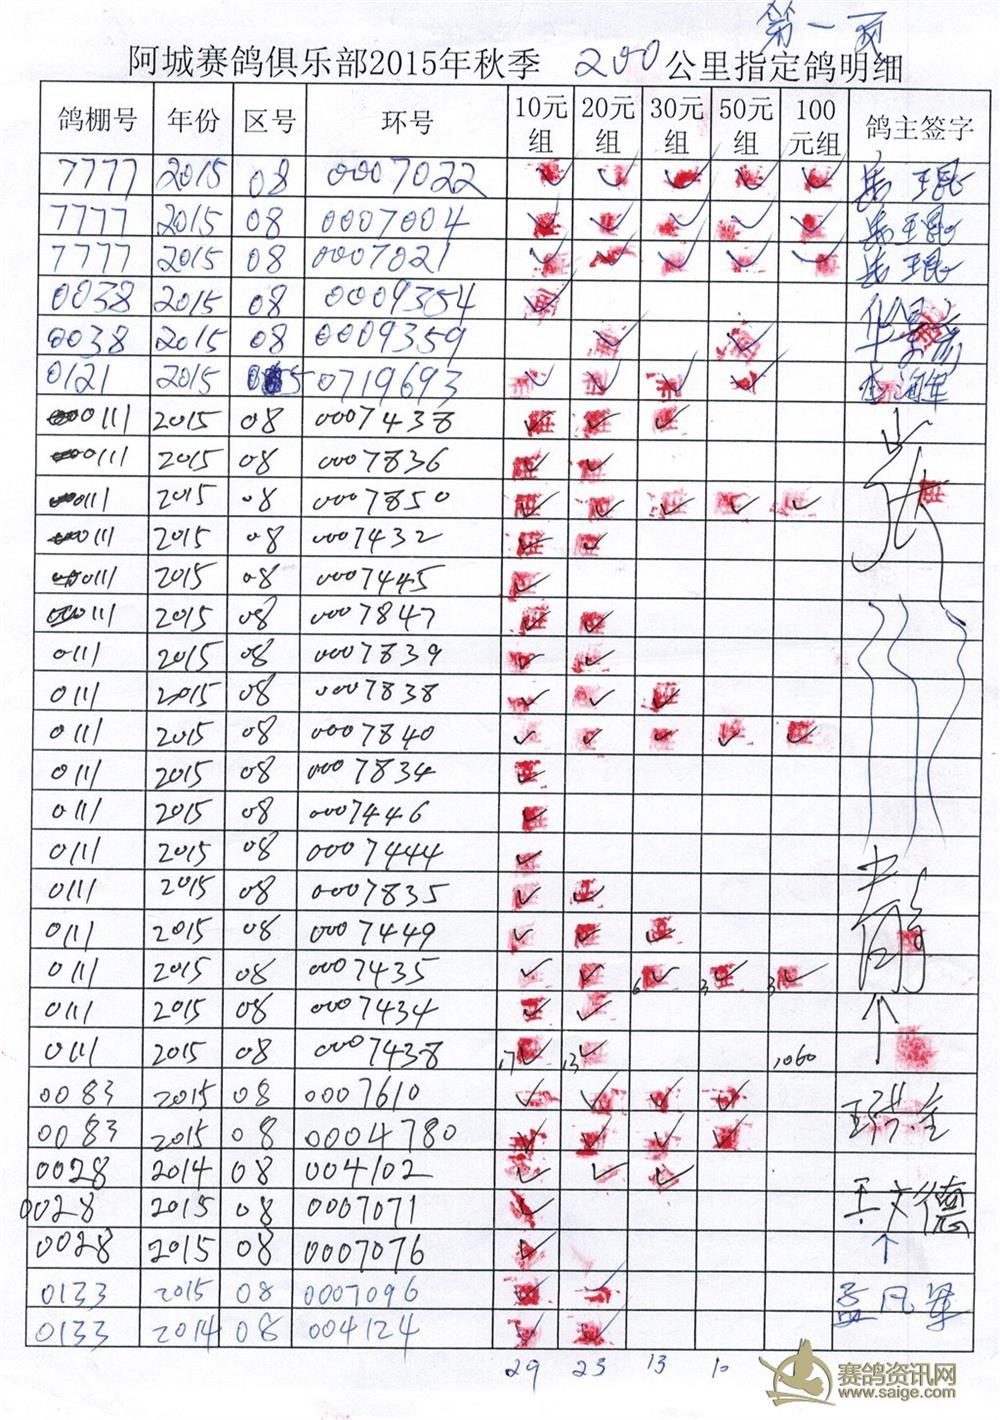 第一页
阿城赛鸽俱乐部2015年秋季 200 公里指定鸽明细
鸽棚号 年份 区号 环号 10元组 20元组 30元组 50元组 100元组 鸽主签字
7777 2015 08 0007022 ✓ ✓ ✓ ✓ ✓
7777 2015 08 0007004 ✓ ✓ ✓ ✓ ✓
7777 2015 08 0007021 ✓ ✓ ✓ ✓ ✓
0038 2015 08 0009354 ✓
0038 2015 08 0009359 ✓ ✓
0121 2015 0719693 ✓ ✓ ✓ ✓
0111 2015 08 0007438 ✓ ✓ ✓
0111 2015 08 0007836 ✓ ✓
0111 2015 08 0007850 ✓ ✓ ✓ ✓ ✓
0111 2015 08 0007432 ✓ ✓
0111 2015 08 0007445 ✓
0111 2015 08 0007847 ✓ ✓
0111 2015 08 0007839 ✓ ✓
0111 2015 08 0007838 ✓ ✓ ✓
0111 2015 08 0007840 ✓ ✓ ✓ ✓ ✓
0111 2015 08 0007834 ✓
0111 2015 08 0007446 ✓
0111 2015 08 0007444 ✓
0111 2015 08 0007835 ✓ ✓
0111 2015 08 0007449 ✓ ✓ ✓
0111 2015 08 0007435 ✓ ✓ 6 ✓ 3 ✓ 3 ✓
0111 2015 08 0007434 ✓ ✓
0111 2015 08 0007438 17 ✓ 13 ✓ 1060
0083 2015 08 0007610 ✓ ✓ ✓ ✓
0083 2015 08 0004780 ✓ ✓ ✓ ✓
0028 2014 08 004102 ✓ ✓ ✓
0028 2015 08 0007071 ✓ 王文德
0028 2015 08 0007076 ✓
0133 2015 08 0007096 ✓ ✓ 孟凡军
0133 2014 08 004124 ✓ ✓
29 23 13 10
赛鸽资讯网
www.saige.com